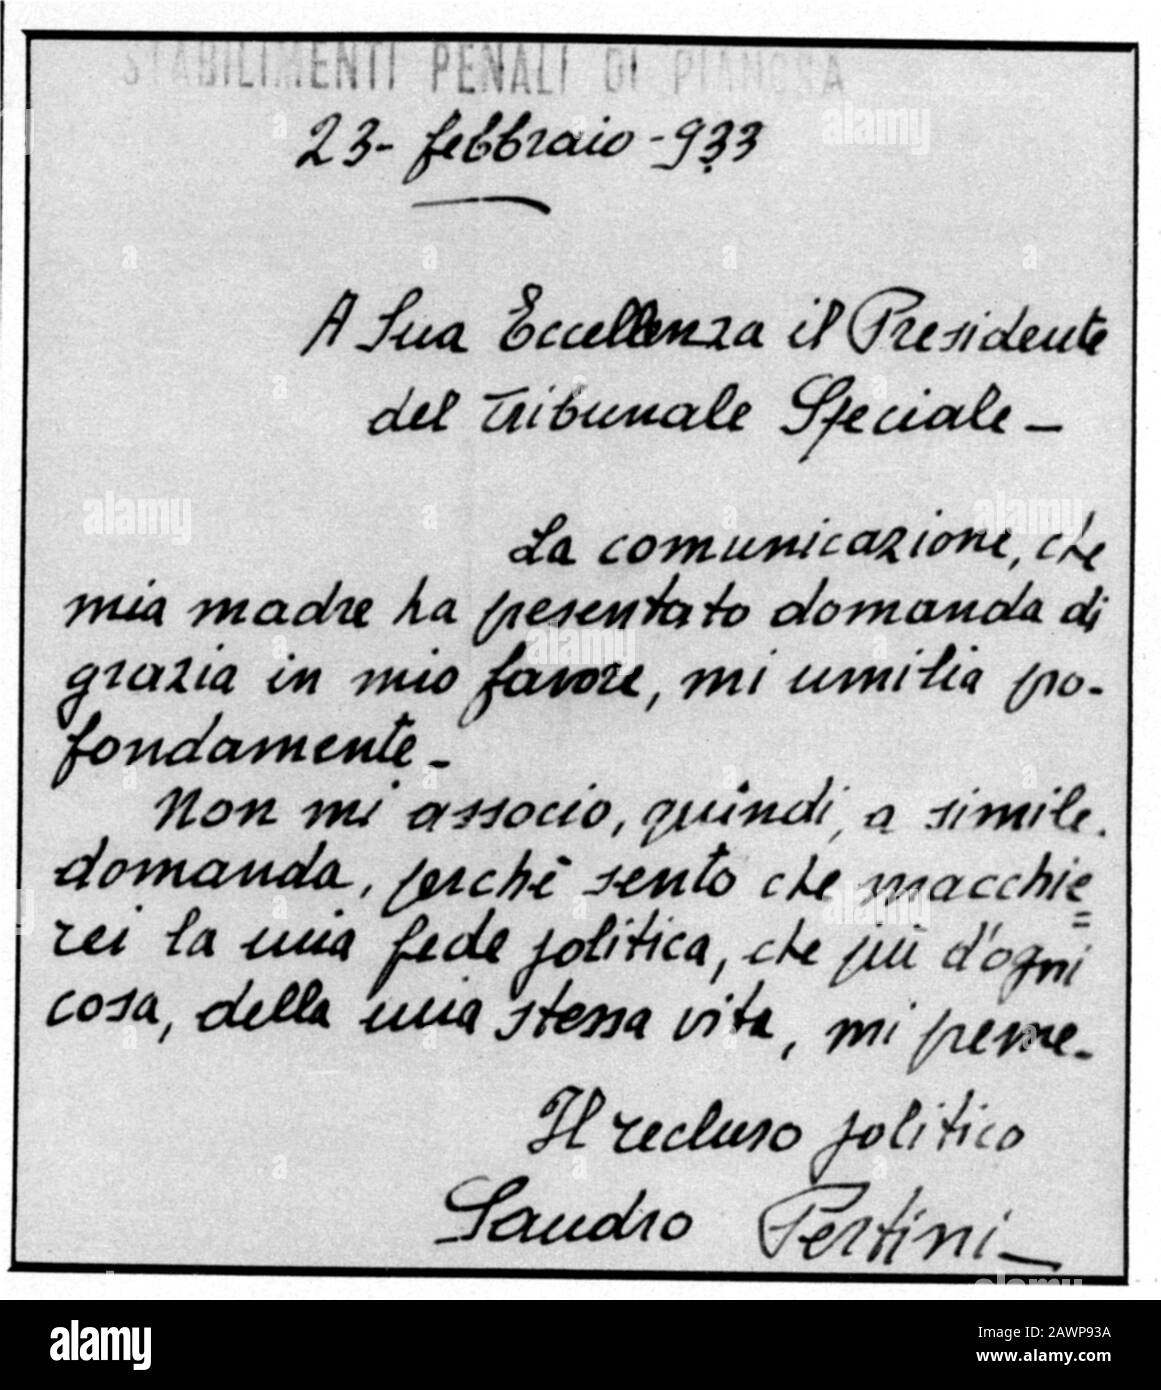 STABILIMENTI PENALI DI PIANOSA
23- febbraio -933
A Sua Eccellenza il Presidente
del Tribunale Speciale -
La comunicazione, che
mia madre ha presentato domanda di
grazia in mio favore, mi umilia pro-
fondamente -
Non mi associo, quindi, a simile
domanda, perchè sento che macchie=
rei la mia fede politica, che più d'ogni
cosa, della mia stessa vita, mi preme -
Il recluso politico
Sandro Pertini -
alamy
Image ID: 2AWP93A
www.alamy.com